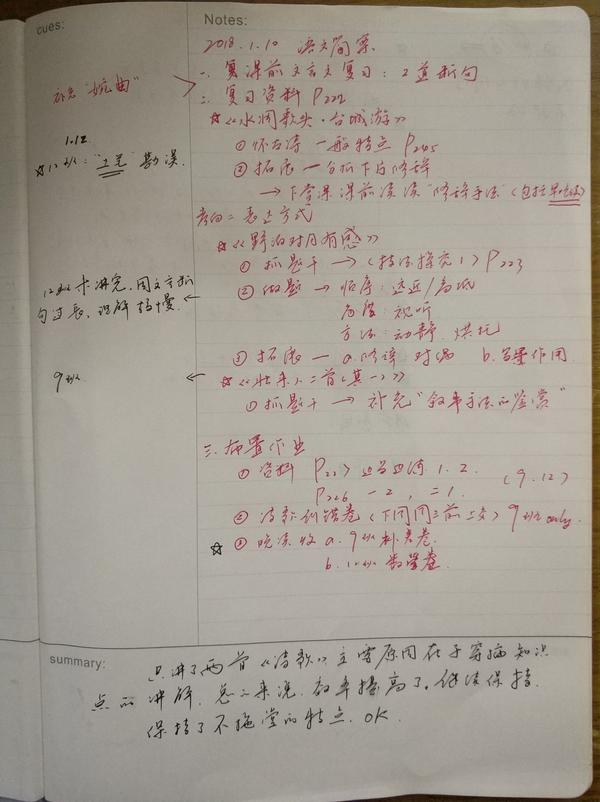 cues:
Notes:
2018.1.10 语文简案
一、复课前文言文复习：2道断句
补充"婉曲"
二、复习资料 P222
☆《水调歌头·台城游》
1.12
①怀古诗一般特点 P245
☆12班："互览"勘误.
②拓展—分析下片修辞
→下堂课课前读读"修辞手法"(包括
表达方式
☆《野泊对月有感》
①抓题干→(技法探究1) P223
12班未讲完,因文言断
句过长、理解稍慢. ←
②做题→顺序:远近/高低
角度:视听
方法:动静、烘托
③拓展— a.修辞 对偶 b.写景作用
9班 ←
☆《壮来二首(其一)》
①抓题干→补充"叙事手法的鉴赏"
三、布置作业
①资料 P227 边写边清 1. 2. (9.12)
P226 一2, 二1.
②诗歌纠错卷(下周周三前上交) 9班only.
☆③晚读收 a. 9班补考卷.
b. 12班数学卷
summary:
只讲了两首《诗歌》主要原因在于穿插知识
点的讲解.总之来说.效率提高了.继续保持.
保持了不拖堂的特点. OK.